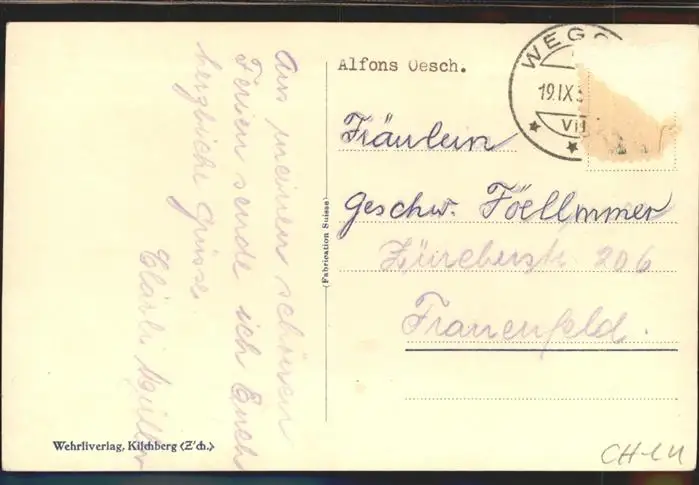 Aus meinen schönen
Ferien sende ich Euch
herzliche Grüsse.
Klärli Müller
Wehrliverlag, Kilchberg (Z'ch.)
(Fabrication Suisse)
Alfons Oesch.
WEGG
19.IX.3
VII
Fräulein
Geschw. Föellmmer
Zürcherstr. 206
Frauenfeld.
CH-LU